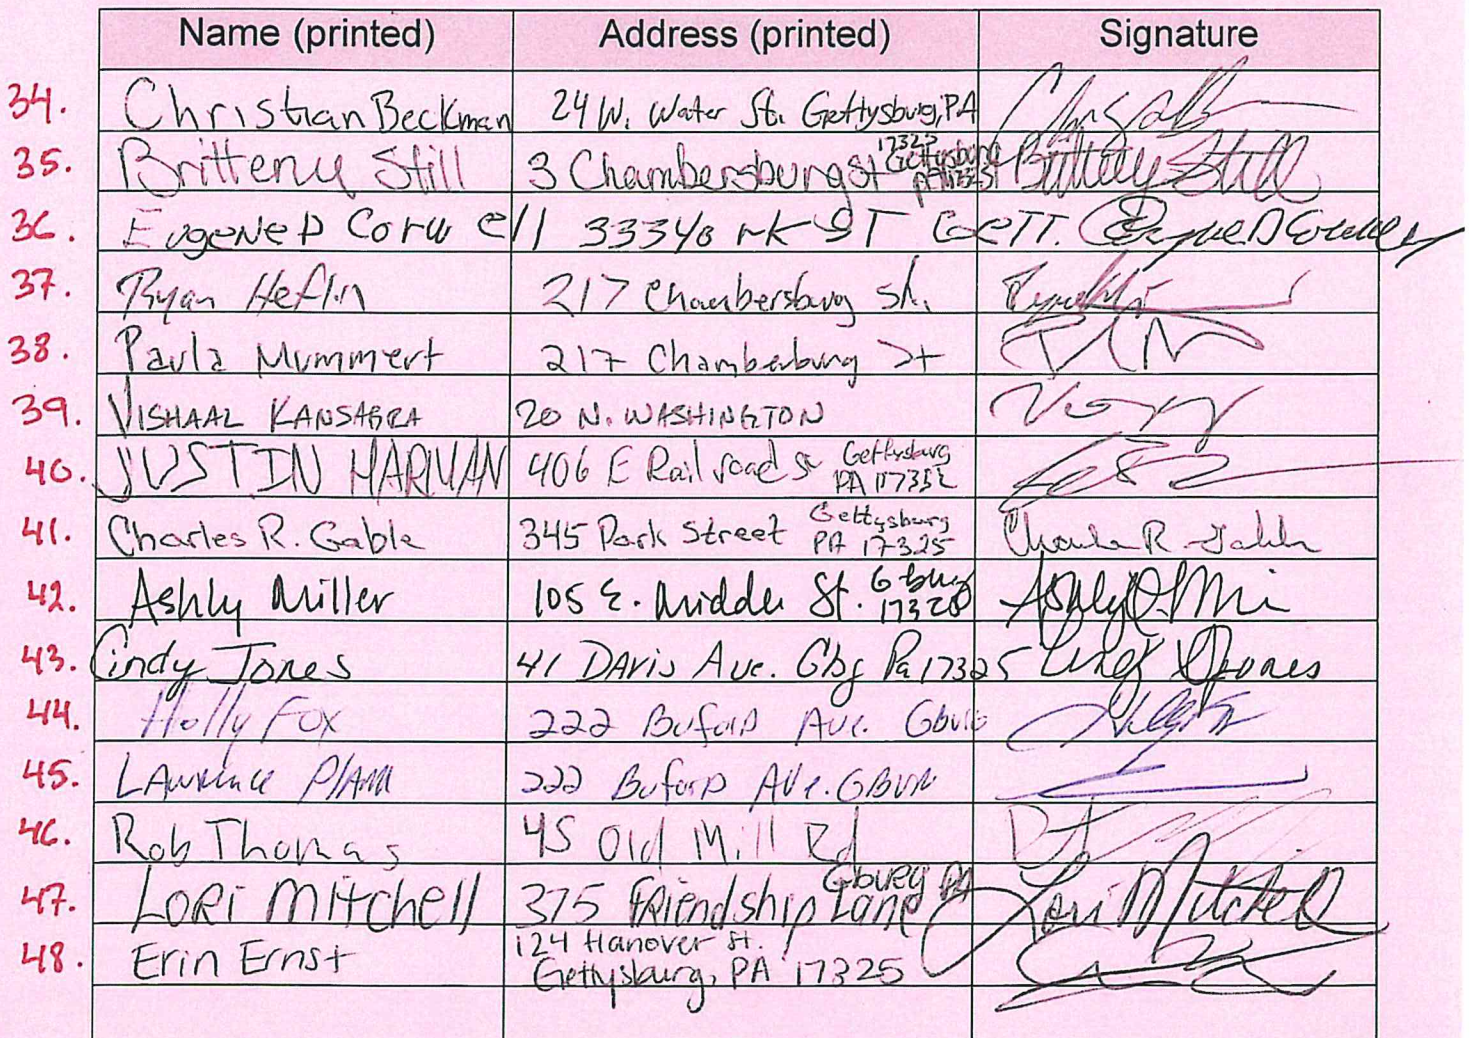 Name (printed) Address (printed) Signature
34. Christian Beckman 24 W. Water St. Gettysburg, PA
35. Britteny Still 3 Chambersburg St Gettysburg PA 17325 Britteny Still
36. Eugene D Corwell 333 York ST GeTT.
37. Ryan Heflin 217 Chambersburg St.
38. Paula Mummert 217 Chambersburg St
39. VISHAAL KANSAGRA 20 N. WASHINGTON
40. JUSTIN 406 E Railroad St Gettysburg PA
41. Charles R. Gable 345 Park Street Gettysburg PA 17325 Charles R. Gable
42. Ashly Miller 105 E. Middle St. Gburg
43. Cindy Jones 41 DAvis Ave. Gbg Pa 17325 Cindy Jones
44. Holly Fox 222 Buford Ave. Gburg
45. LAwrence 222 Buford AVe.
46. Rob Thomas 45 Old Mill Rd
47. LoRi Mitchell 375 FRiendship Lane Gburg PA Lori Mitchell
48. Erin Ernst 124 Hanover St.
Gettysburg, PA 17325